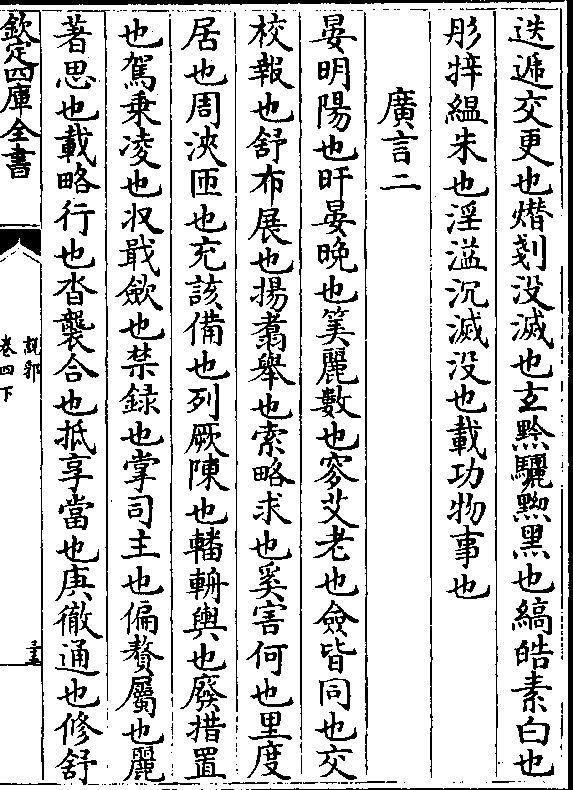 迭遞交更也熸剗沒滅也玄黔驪黝黒也縞皓素白也
彤㸴緼朱也淫溢沉滅没也載功物事也
廣言二
晏明陽也旰晏晚也筭麗數也叜艾老也僉皆同也交
校報也舒布展也揚翥舉也索略求也奚害何也里度
居也周浹匝也充該備也列厥陳也轓軿輿也廢措置
也駕乗凌也収戢斂也禁録也掌司主也偏贅屬也麗
著思也載略行也沓襲合也抵享當也庚徹通也修舒
欽定四庫全書
説郛
卷四下